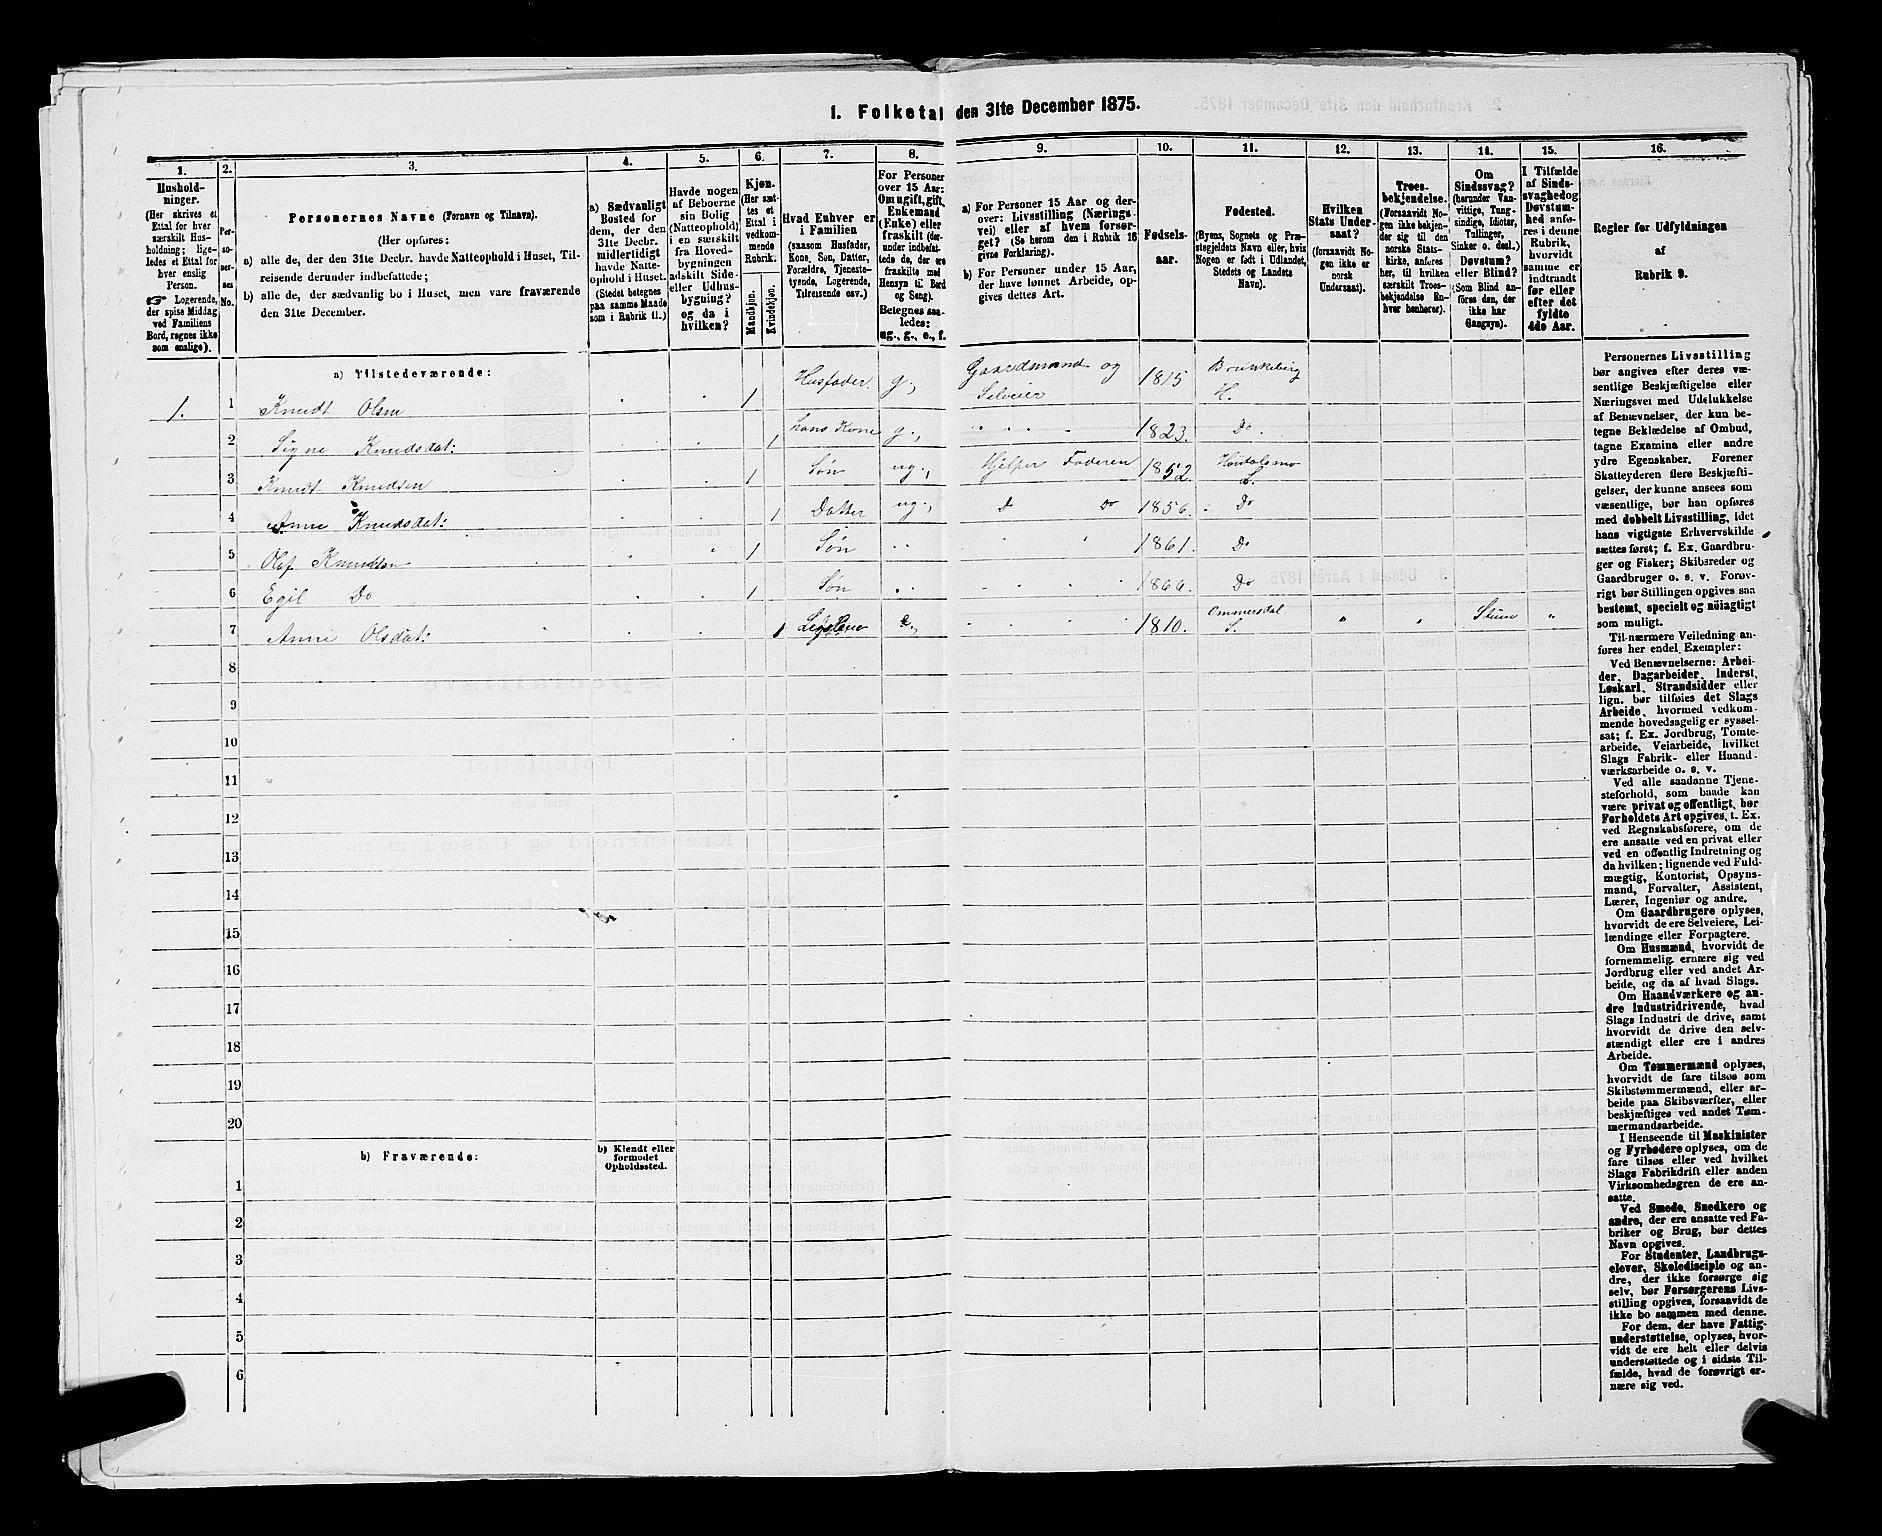 1. Folketal den 31te December 1875.
1. 2. 3. 4. 5. 6. 7. 8. 9. 10. 11. 12. 13. 14. 15. 16.
Hushold-
ninger.
(Her skrives et
Ettal for hver
særskilt Hus-
holdning; lige-
ledes et Ettal for
hver enslig
Person.
☞ Logerende,
der spise Middag
ved Familiens
Bord, regnes ikke
som enslige).
Per-
so-
ner-
nes
No.
Personernes Navne (Fornavn og Tilnavn).
(Her opføres:
a) alle de, der den 31te Decbr. havde Natteophold i Huset, Til-
reisende derunder indbefattede;
b) alle de, der sædvanlig bo i Huset, men vare fraværende
den 31te December.
a) Sædvanligt
Bosted for
dem, der den
31te Decbr.
midlertidigt
havde Natte-
ophold i Huset.
(Stedet betegnes
paa samme Maade
som i Rubrik 11.)
Havde nogen
af Beboerne
sin Bolig
(Natteophold)
i en særskilt
fra Hoved-
bygningen
adskilt Side-
eller Udhus-
bygning?
og da i
hvilken?
Kjøn.
(Her sæt-
tes et
Ettal i
vedkom-
mende
Rubrik.
Mandkjøn.
Kvindekjøn.
Hvad Enhver er
i Familien
(saasom Husfader,
Kone, Søn, Datter,
Forældre, Tjeneste-
tyende, Logerende,
Tilreisende osv.)
For Personer
over 15 Aar:
Om ugift, gift,
Enkemand
(Enke) eller
fraskilt (der-
under indbefat-
tede de, der ere
fraskilte med
Hensyn til Bord
og Seng).
Betegnes saa-
ledes:
ug., g., e., f.
a) For Personer 15 Aar og der-
over: Livsstilling (Nærings-
vei) eller af hvem forsør-
get? (Se herom den i Rubrik 16
givne Forklaring).
b) For Personer under 15 Aar,
der have lønnet Arbeide, op-
gives dettes Art.
Fødsels-
aar.
Fødested.
(Byens, Sognets og Præ-
stegjeldets Navn eller, hvis
Nogen er født i Udlandet,
Stedets og Landets
Navn).
Hvilken
Stats Under-
saat?
(forsaavidt No-
gen ikke er
norsk
Undersaat).
Troes-
bekjendelse.
(Forsaavidt No-
gen ikke bekjen-
der sig til den
norske Stats-
kirke, anføres
her, til hvilken
særskilt Troes-
bekjendelse En-
hver henhører).
Om
Sindssvag?
(herunder Van-
vittige, Tung-
sindige, Idioter,
Tullinger,
Sinker o. desl.)
Døvstum?
eller Blind?
(Som Blind an-
føres den, der
ikke har
Gangsyn).
I Tilfælde
af Sinds-
svaghed og
Døvstum-
hed anfø-
res i denne
Rubrik,
hvorvidt
samme er
indtraadt
før eller
efter det
fyldte
4de Aar.
Regler for Udfyldningen
af
Rubrik 9.
a) Tilstedeværende:
1. 1 Knudt Olsen 1 Husfader g., Gaardmand og Selveier 1815 Brunkeberg H.
2 Signe Knudsdat: 1 hans Kone g., 1823. Do.
3 Knudt Knudsen 1 Søn ug., Hjelper Faderen 1852. S.
4 Anne Knudsdat: 1 Datter ug., D Do 1856. Do
5 Olaf Knudsen 1 Søn 1861. Do
6 Egil Do 1 Søn 1866. Do
7 Anne Olsdat: 1 e., 1810. Ommersdal S. " " Stum "
8
9
10
11
12
13
14
15
16
17
18
19
20
b) Fraværende:
b) Kjendt eller
formodet
Opholdssted.
1
2
3
4
5
6
Personernes Livsstilling
bør angives efter deres væ-
sentlige Beskjæftigelse eller
Næringsvei med Udelukkelse
af Benævnelser, der kun be-
tegne Beklædelse af Ombud,
tagne Examina eller andre
ydre Egenskaber. Forener
Skatteyderen flere Beskjæfti-
gelser, der kunne ansees som
væsentlige, bør han opføres
med dobbelt Livsstilling, idet
hans vigtigste Erhvervskilde
sættes først; f. Ex. Gaardbru-
ger og Fisker; Skibsreder og
Gaardbruger o. s. v. Forøv-
rigt bør Stillingen opgives saa
bestemt, specielt og nøiagtigt
som muligt.
Til nærmere Veiledning an-
føres her endel Exempler:
Ved Benævnelserne: Arbei-
der, Dagarbeider, Inderst,
Løskarl, Strandsidder eller
lign. bør tilføies det Slags
Arbeide, hvormed vedkom-
mende hovedsagelig er syssel-
sat; f. Ex. Jordbrug, Tomte-
arbeide, Veiarbeide, hvilket
Slags Fabrik- eller Haand-
værksarbeide o. s. v.
Ved alle saadanne Tjene-
steforhold, som baade kan
være privat og offentligt, bør
Forholdets Art opgives, t. Ex.
ved Regnskabsførere, om de
ere ansatte ved en privat eller
ved en offentlig Indretning og
da hvilken; lignende ved Fuld-
mægtig, Kontorist, Opsyns-
mand, Forvalter, Assistent,
Lærer, Ingeniør og andre.
Om Gaardbrugere oplyses,
hvorvidt de ere Selveiere, Lei-
lændinge eller Forpagtere.
Om Husmænd, hvorvidt de
fornemmelig ernære sig ved
Jordbrug eller ved andet Ar-
beide, og da af hvad Slags.
Om Haandværkere og an-
dre Industridrivende, hvad
Slags Industri de drive, samt
hvorvidt de drive den selv-
stændigt eller ere i andres
Arbeide.
Om Tømmermænd oplyses,
hvorvidt de fare tilsøs som
Skibstømmermænd, eller ar-
beide paa Skibsværfter, eller
beskjæftiges ved andet Tøm-
mermandsarbeide.
I Henseende til Maskinister
og Fyrbødere oplyses, om de
fare tilsøs eller ved hvilket
Slags Fabrikdrift eller anden
Virksomhedsgren de ere an-
satte.
Ved Smede, Snedkere og
andre, der ere ansatte ved Fa-
briker og Brug, bør dettes
Navn opgives.
For Studenter, Landbrugs-
elever, Skoledisciple og an-
dre, der ikke forsørge sig
selv, bør Forsørgerens Livs-
stilling opgives, forsaavidt de
ikke bo sammen med denne.
For dem, der have Fattig-
understøttelse, oplyses, hvor-
vidt de ere helt eller delvis
understøttede og i sidste Til-
fælde, hvad de forøvrigt er-
nære sig ved.